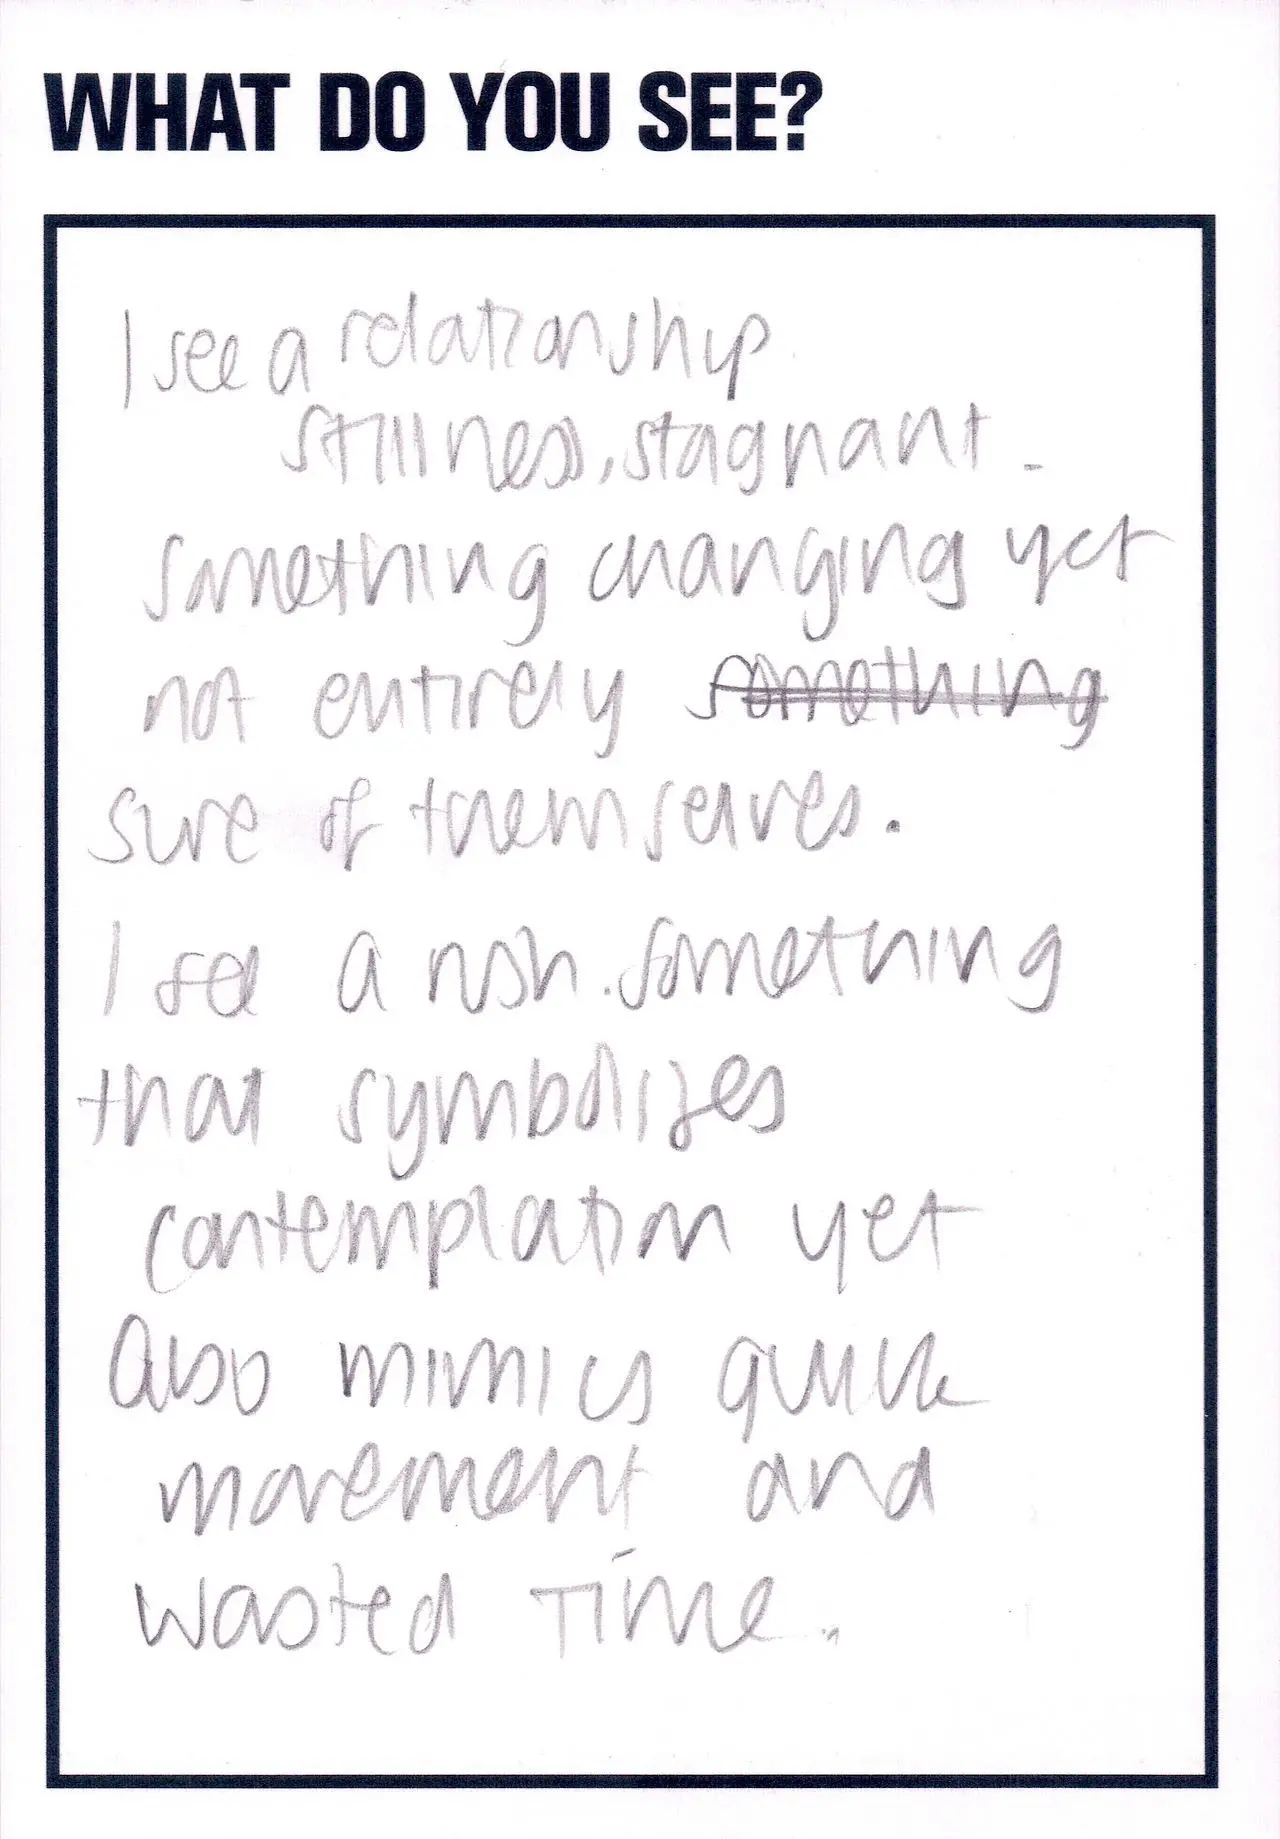 WHAT DO YOU SEE?
I see a relationship
stillness, stagnant.
something changing yet
not entirely ~~something~~
sure of themselves.
I see a rush. something
that symbolizes
contemplation yet
also mimics quick
movement and
wasted time.